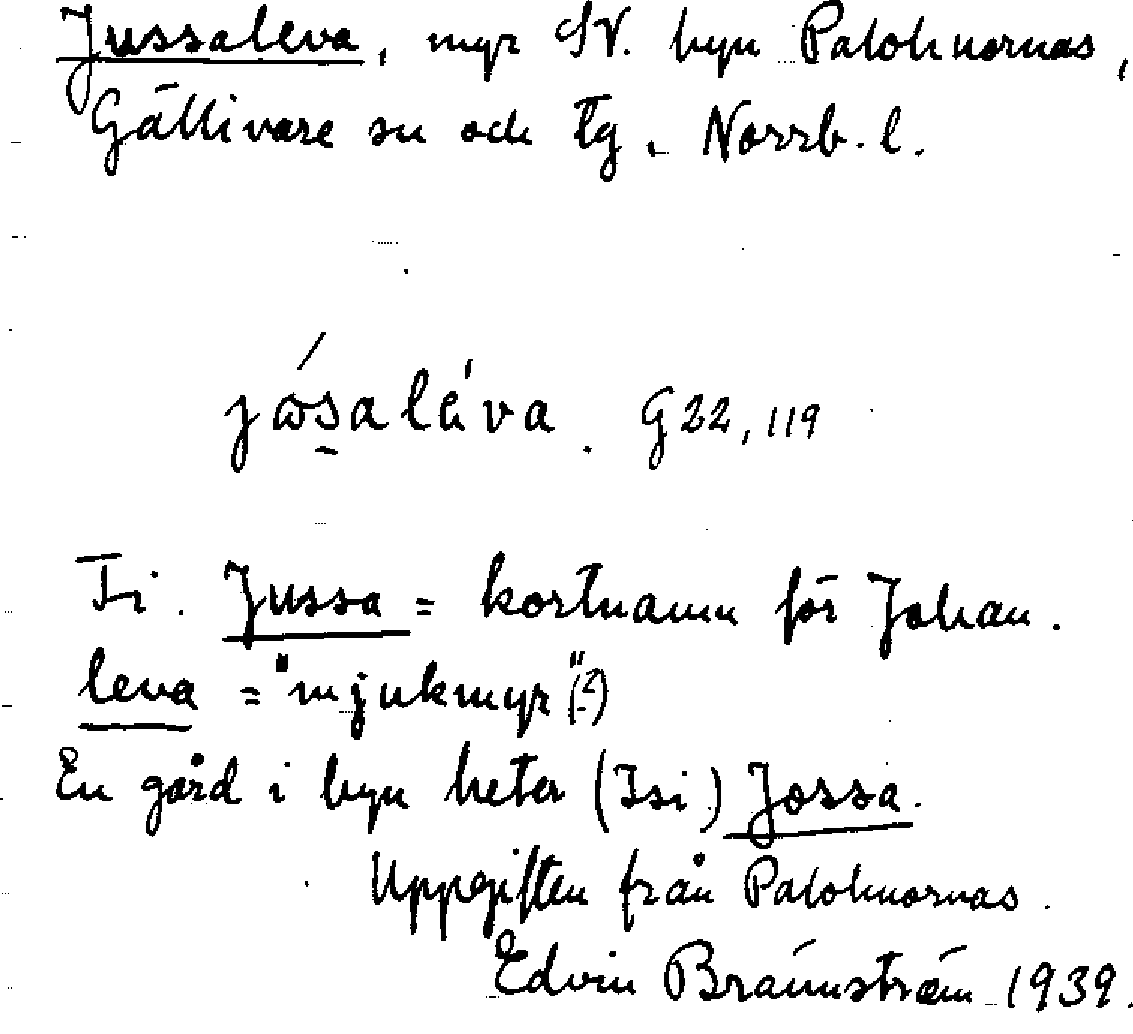 Jussaleva, myr SV. byn Palohuornas,
Gällivare sn och tg, Norrb. l.
jósaláva. G22, 119
Fi. Jussa = kortnamn för Johan.
leva = "mjukmyr"(?)
En gård i byn heter (Isi) Jossa.
Uppgiften från Palohuornas.
Edvin Brännström 1939.